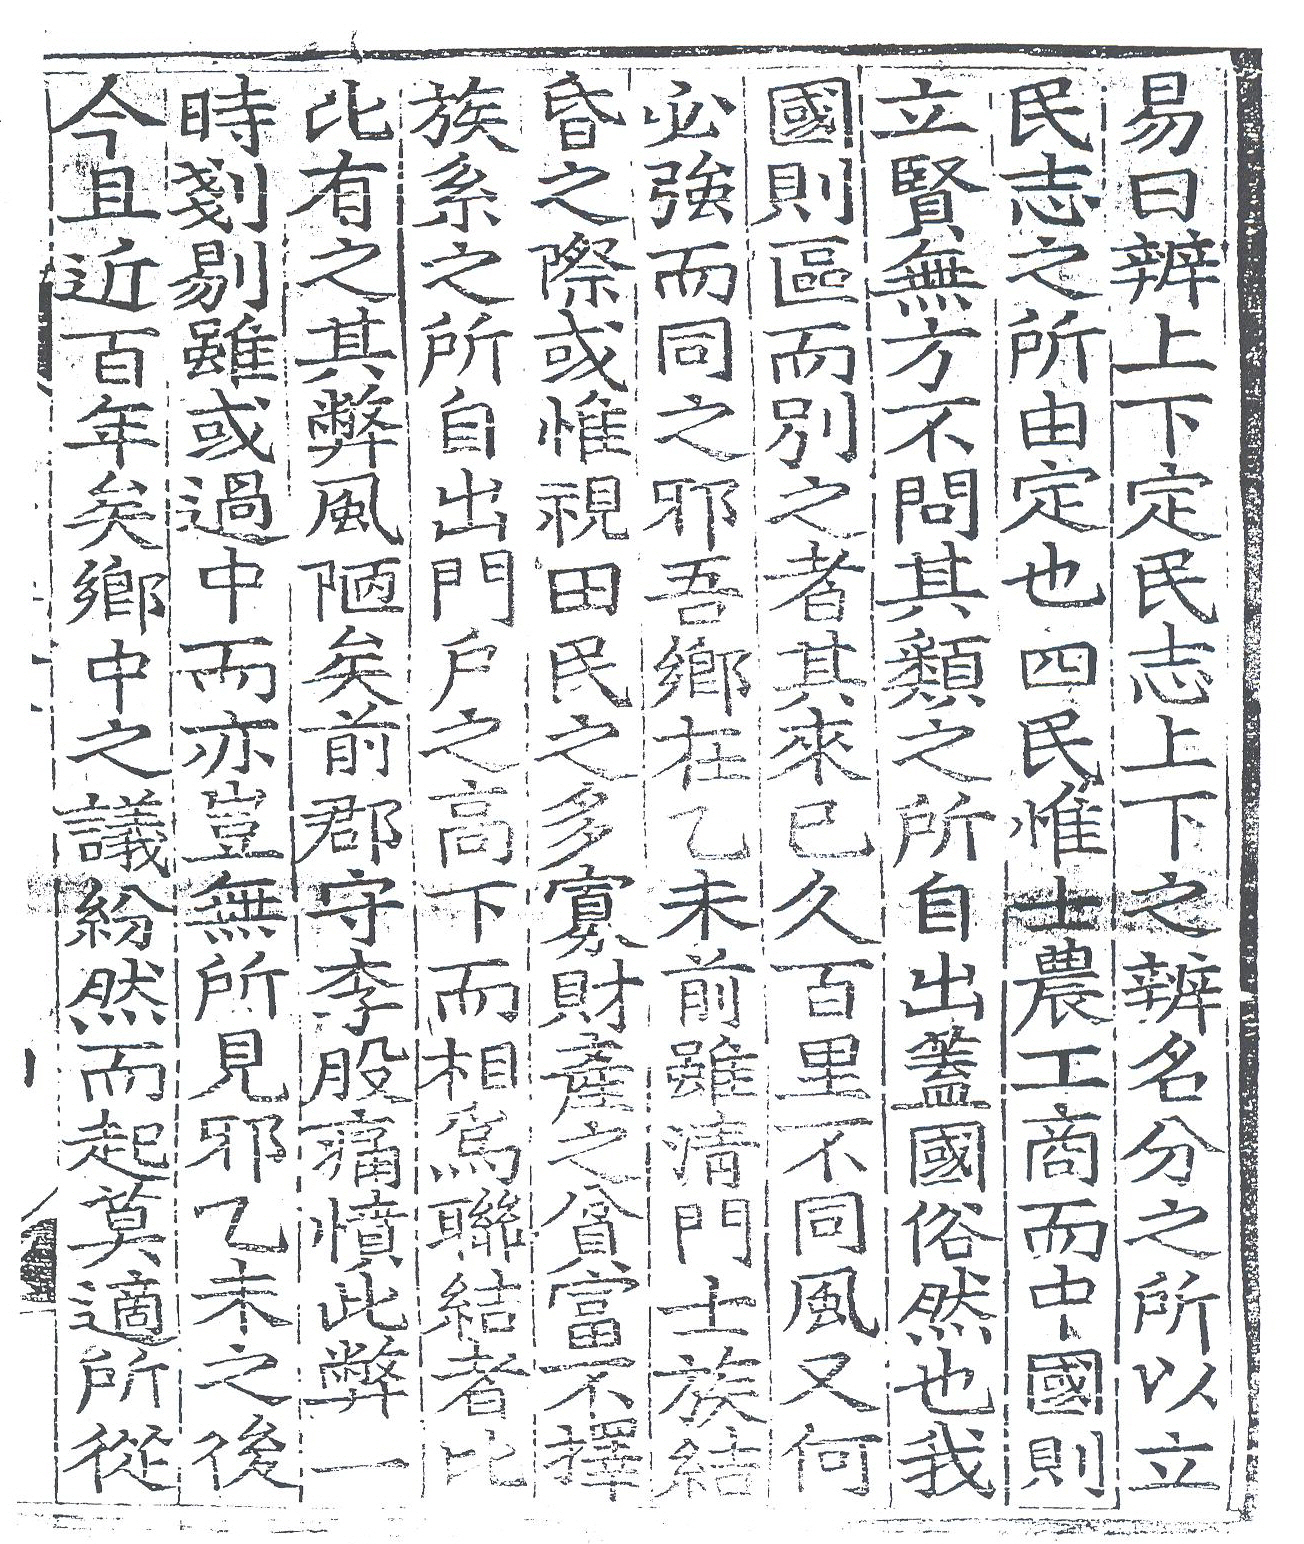 易曰辨上下定民志上下之辨名分之所以立
民志之所由定也四民惟士農工商而中國則
立賢無方不問其類之所自出蓋國俗然也我
國則區而別之者其來已久百里不同風又何
必強而同之邪吾鄕在乙未前雖淸門士族結
昏之際或惟視田民之多寡財產之貧富不擇
族系之所自出門戶之高下而相爲聯結者比
比有之其弊風陋矣前郡守李股痛憤此弊一
時剗剔雖或過中而亦豈無所見邪乙未之後
今且近百年矣鄕中之議紛然而起莫適所從